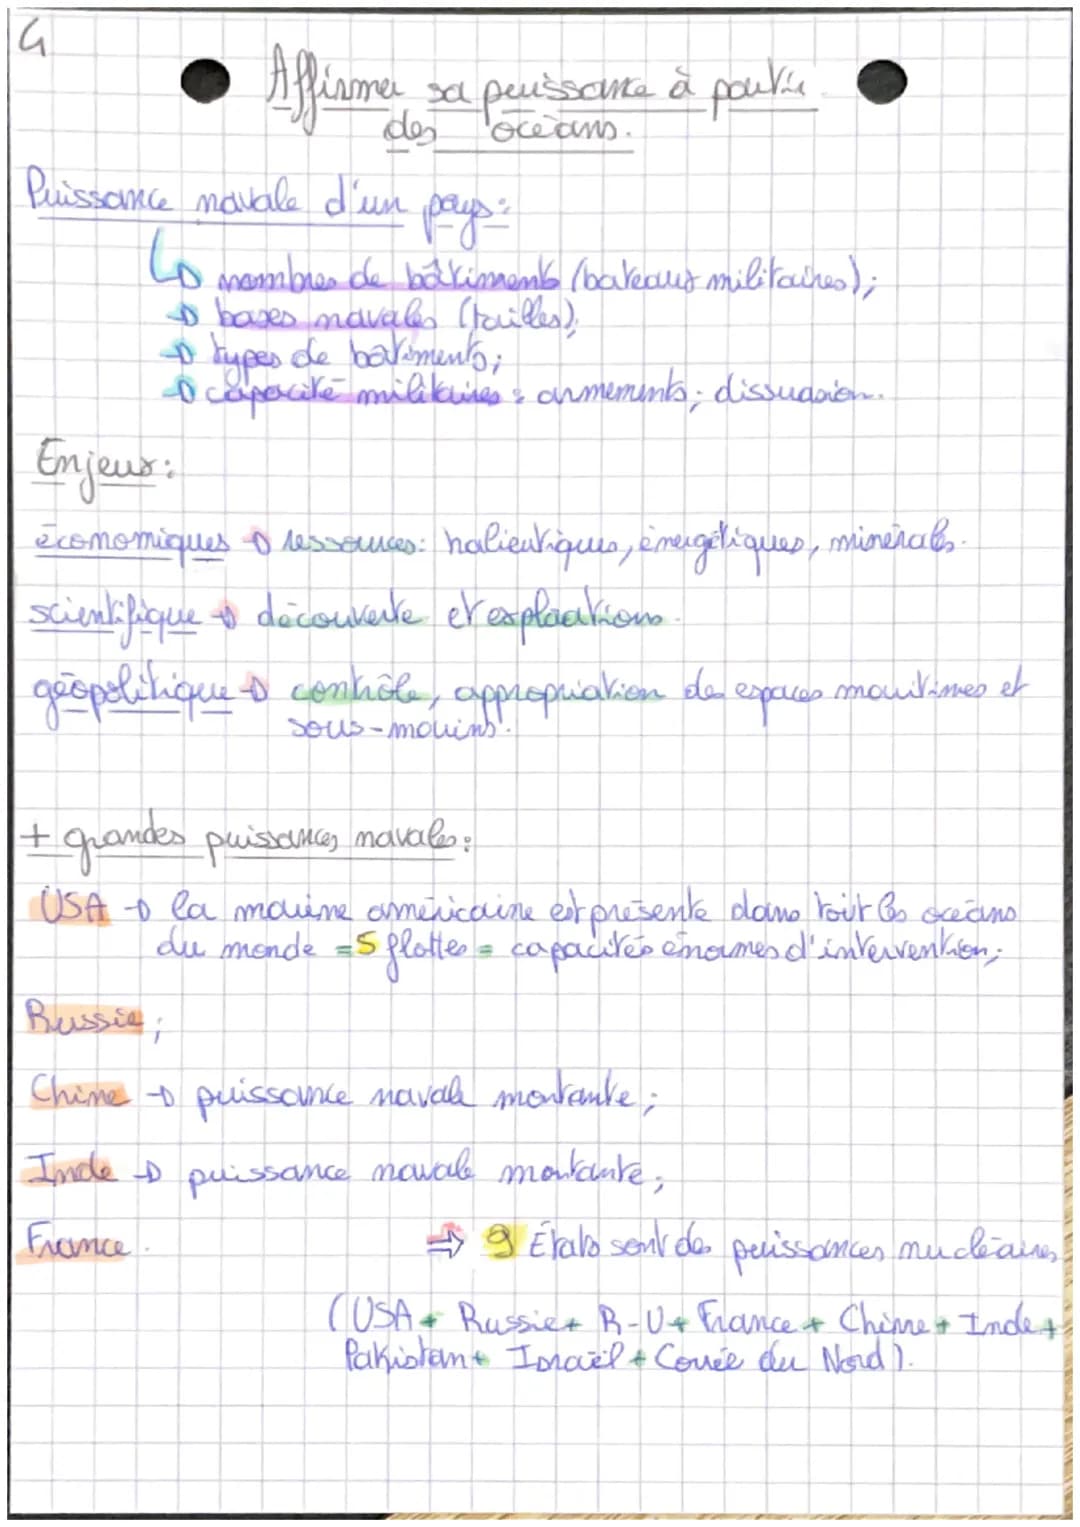 4
Affirmer sa puissance à partir
des océans.
Puissance navale d'un pays:
nombres de bâtiments (bateaux militaires);
bases navales (tailles);
types de bâtiments;
capacité militaires : armements; dissuasion.
Enjeux:
économiques → ressources: halieutiques, énergétiques, minérals.
scientifique → découverte et explorations.
géopolitique → contrôle, appropriation des espaces maritimes et
sous-marins.
+ grandes puissances navales:
USA → la marine américaine est présente dans tout les océans
du monde = 5 flottes = capacités énormes d'intervention;
Russie;
Chine → puissance navale montante;
Inde → puissance navale montante;
France.
⇒ 9 États sont des puissances nucléaires
(USA + Russie + R-U + France + Chine + Inde +
Pakistan + Israël + Corée du Nord).